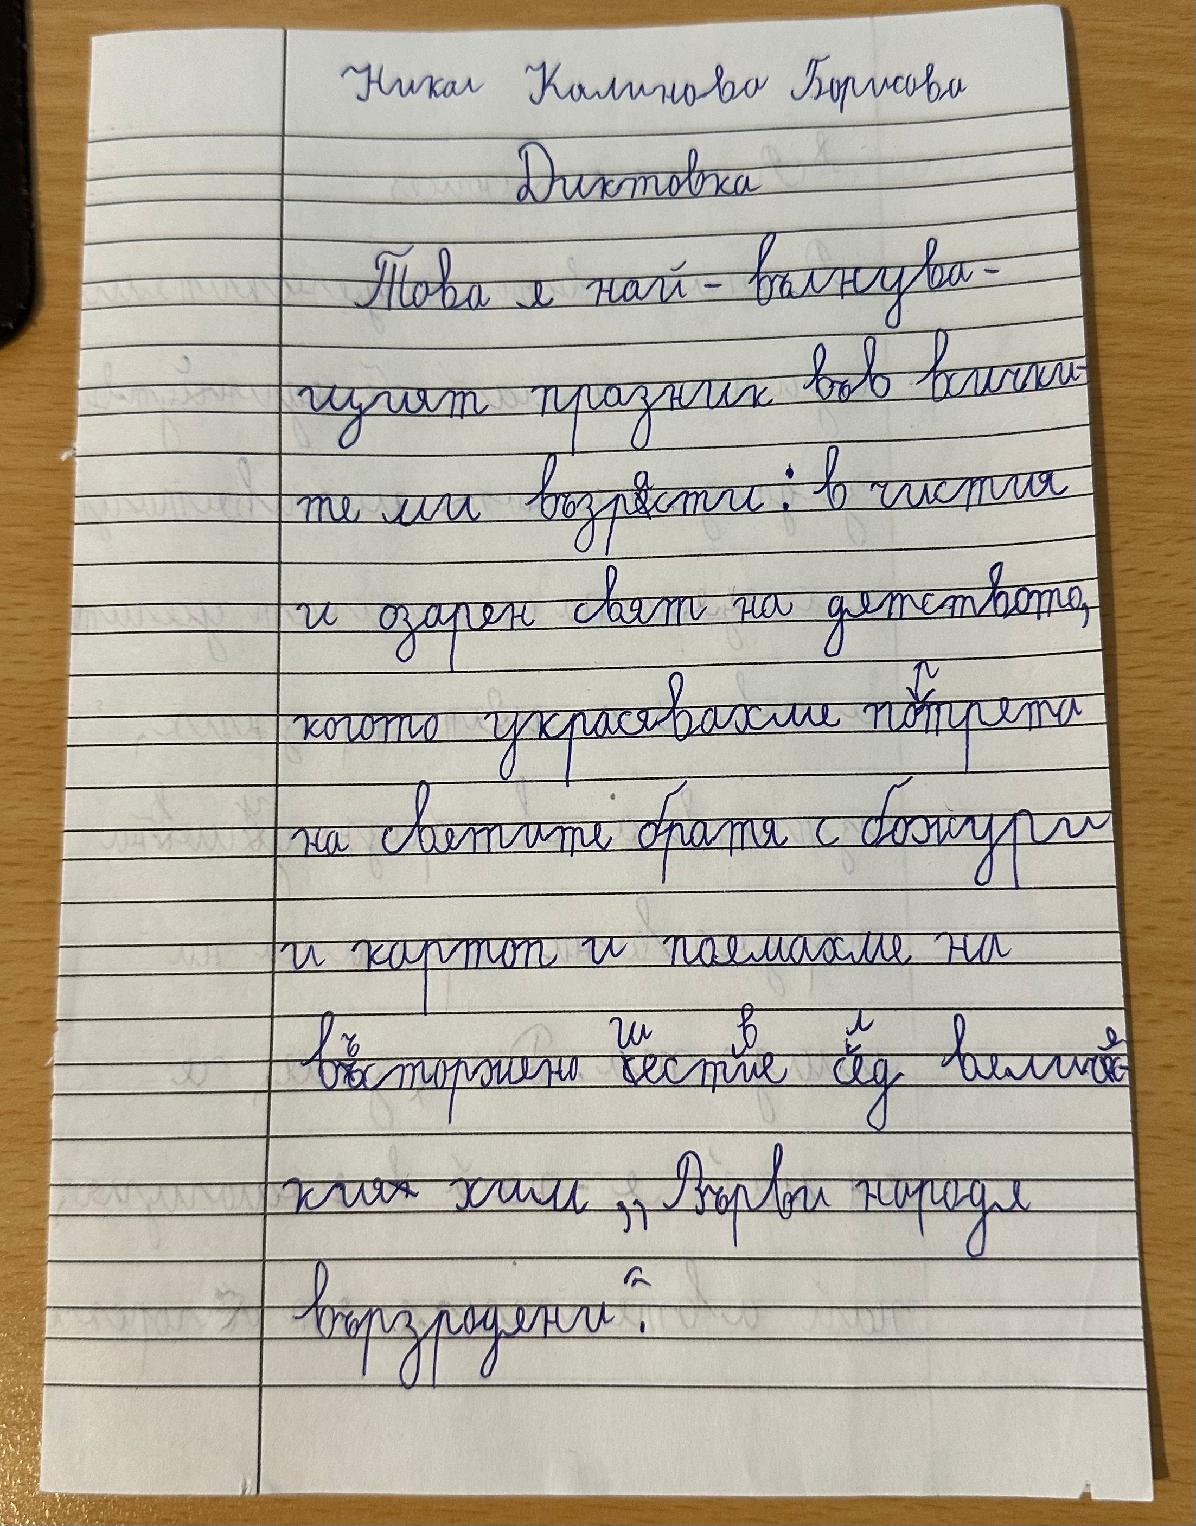 Никол Калинова Борисова
Диктовка
Това е най-вълнува-
щият празник във всички-
те ми възрасти: в чистия
и озарен свят на детството,
когото украсявахме портрета
на светите братя с божури
и картоп и поемахме на
възторжено шествие след вели-
кия химн „Върви народе
вързродени“.